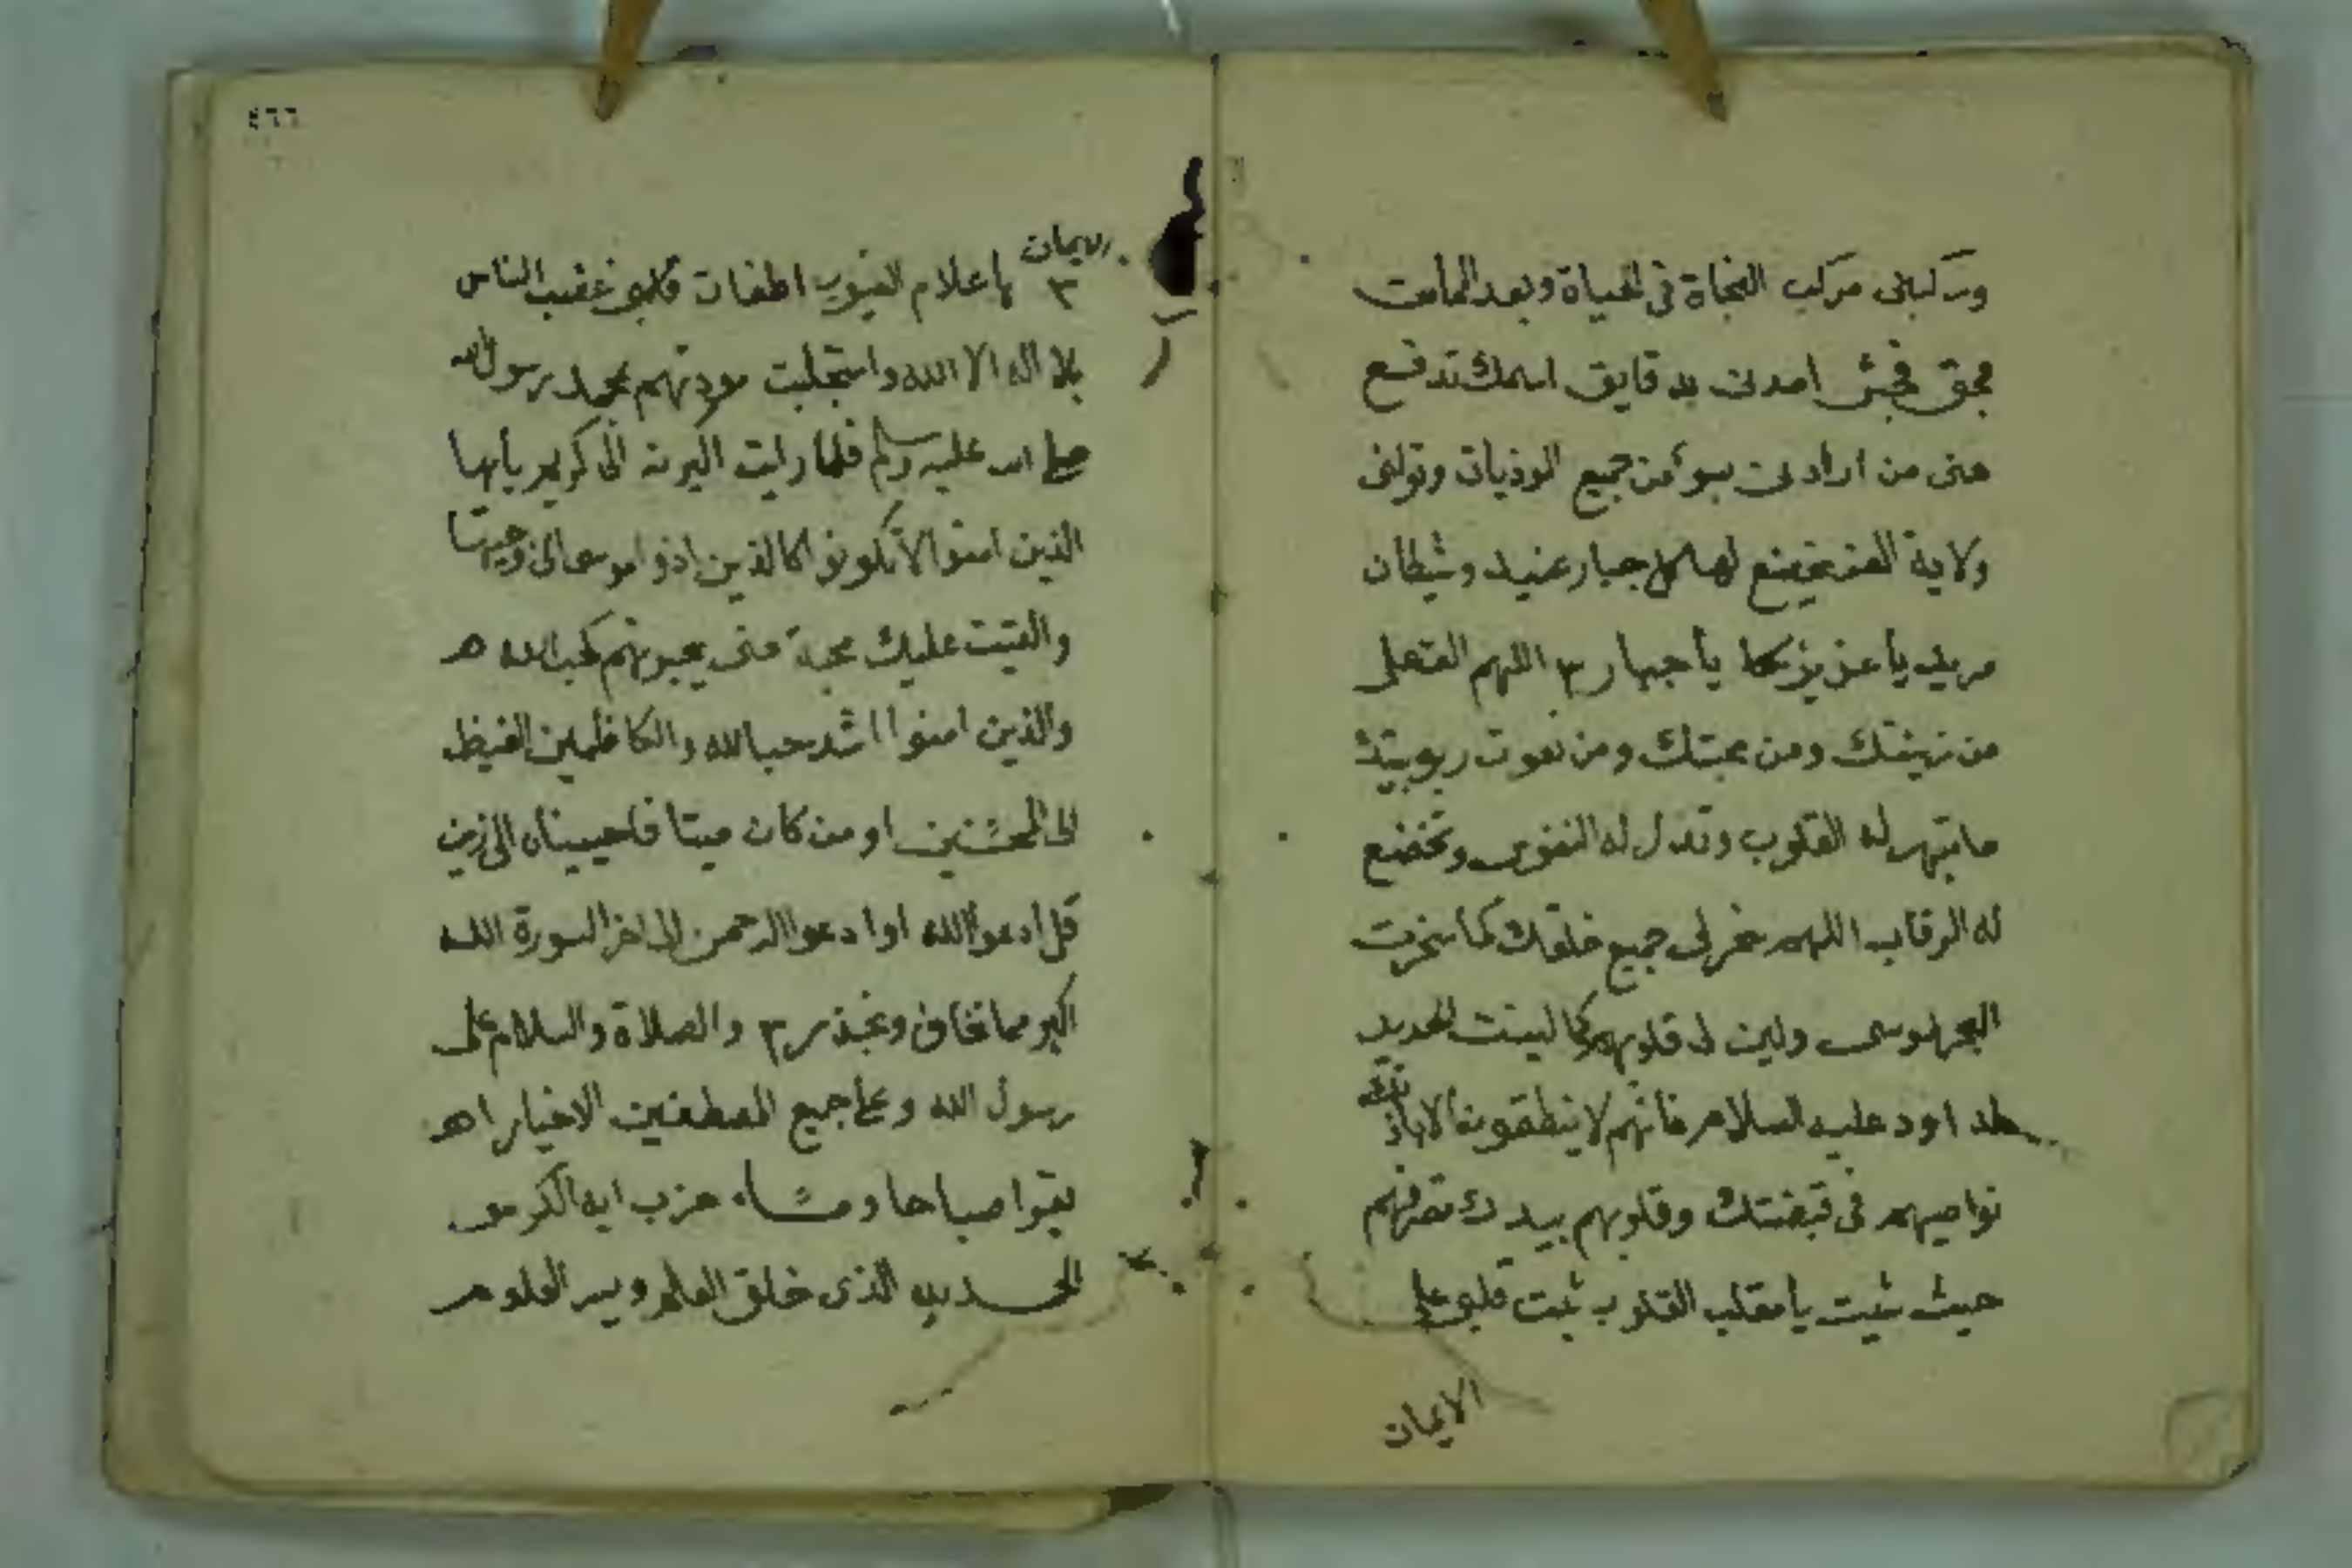 وركبنى مركب النجاة فى الحياة وبعد الممات
بحق فجش امدنى بدقايق اسمك تدفع
عنى من ارادنى بسوء من جميع الموذيات وتولنى
ولاية العز يخضع لها كل جبار عنيد وشيطان
مريد يا عزيز يا جبار ٣ اللهم الق على
من زينتك ومن محبتك ومن نعوت ربوبيتك
ما تبهر له القلوب وتذل له النفوس وتخضع
له الرقاب اللهم سخر لى جميع خلقك كما سخرت
البحر لموسى ولين لى قلوبهم كما لينت الحديد
لداود عليه السلام فانهم لا ينطقون الا باذنك
نواصيهم فى قبضتك وقلوبهم بيدك تصرفهم
حيث شيت يا مقلب القلوب ثبت قلبى على
الايمان
٤٦٦
الايمان
٣ يا علام الغيوب اطفات غضب الناس
بلا اله الا الله واستجلبت مودتهم بمحمد رسول الله
صلى الله عليه وسلم فلما راينه اكبرنه الى كريم يا ايها
الذين امنوا لا تكونوا كالذين اذوا موسى الى وجيها
والقيت عليك محبة منى يحبونهم كحب الله
والذين امنوا اشد حبا لله والكاظمين الغيظ
الى المحسنين او من كان ميتا فاحييناه الى زين
قل ادعوا الله او ادعوا الرحمن الى اخر السورة الله
اكبر مما نخاف ونحذر ٣ والصلاة والسلام على
رسول الله وعلى جميع المصطفين الاخيار اهـ
يقرا صباحا ومساء حزب اية الكرسى
الحمد لله الذى خلق القلم ويسر العلوم